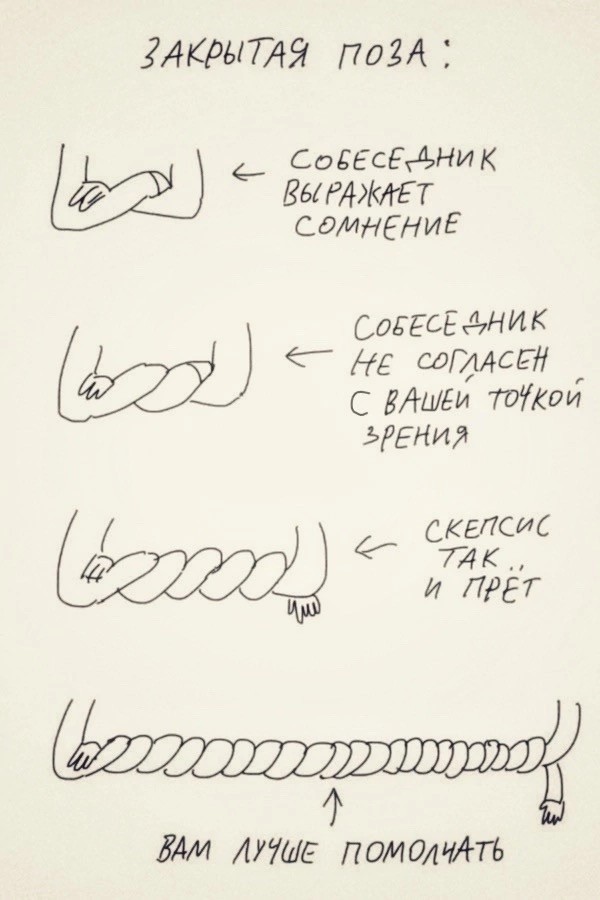 ЗАКРЫТАЯ ПОЗА:
СОБЕСЕДНИК
ВЫРАЖАЕТ
СОМНЕНИЕ
СОБЕСЕДНИК
НЕ СОГЛАСЕН
С ВАШЕЙ ТОЧКОЙ
ЗРЕНИЯ
СКЕПСИС
ТАК
И ПРЁТ
ВАМ ЛУЧШЕ ПОМОЛЧАТЬ